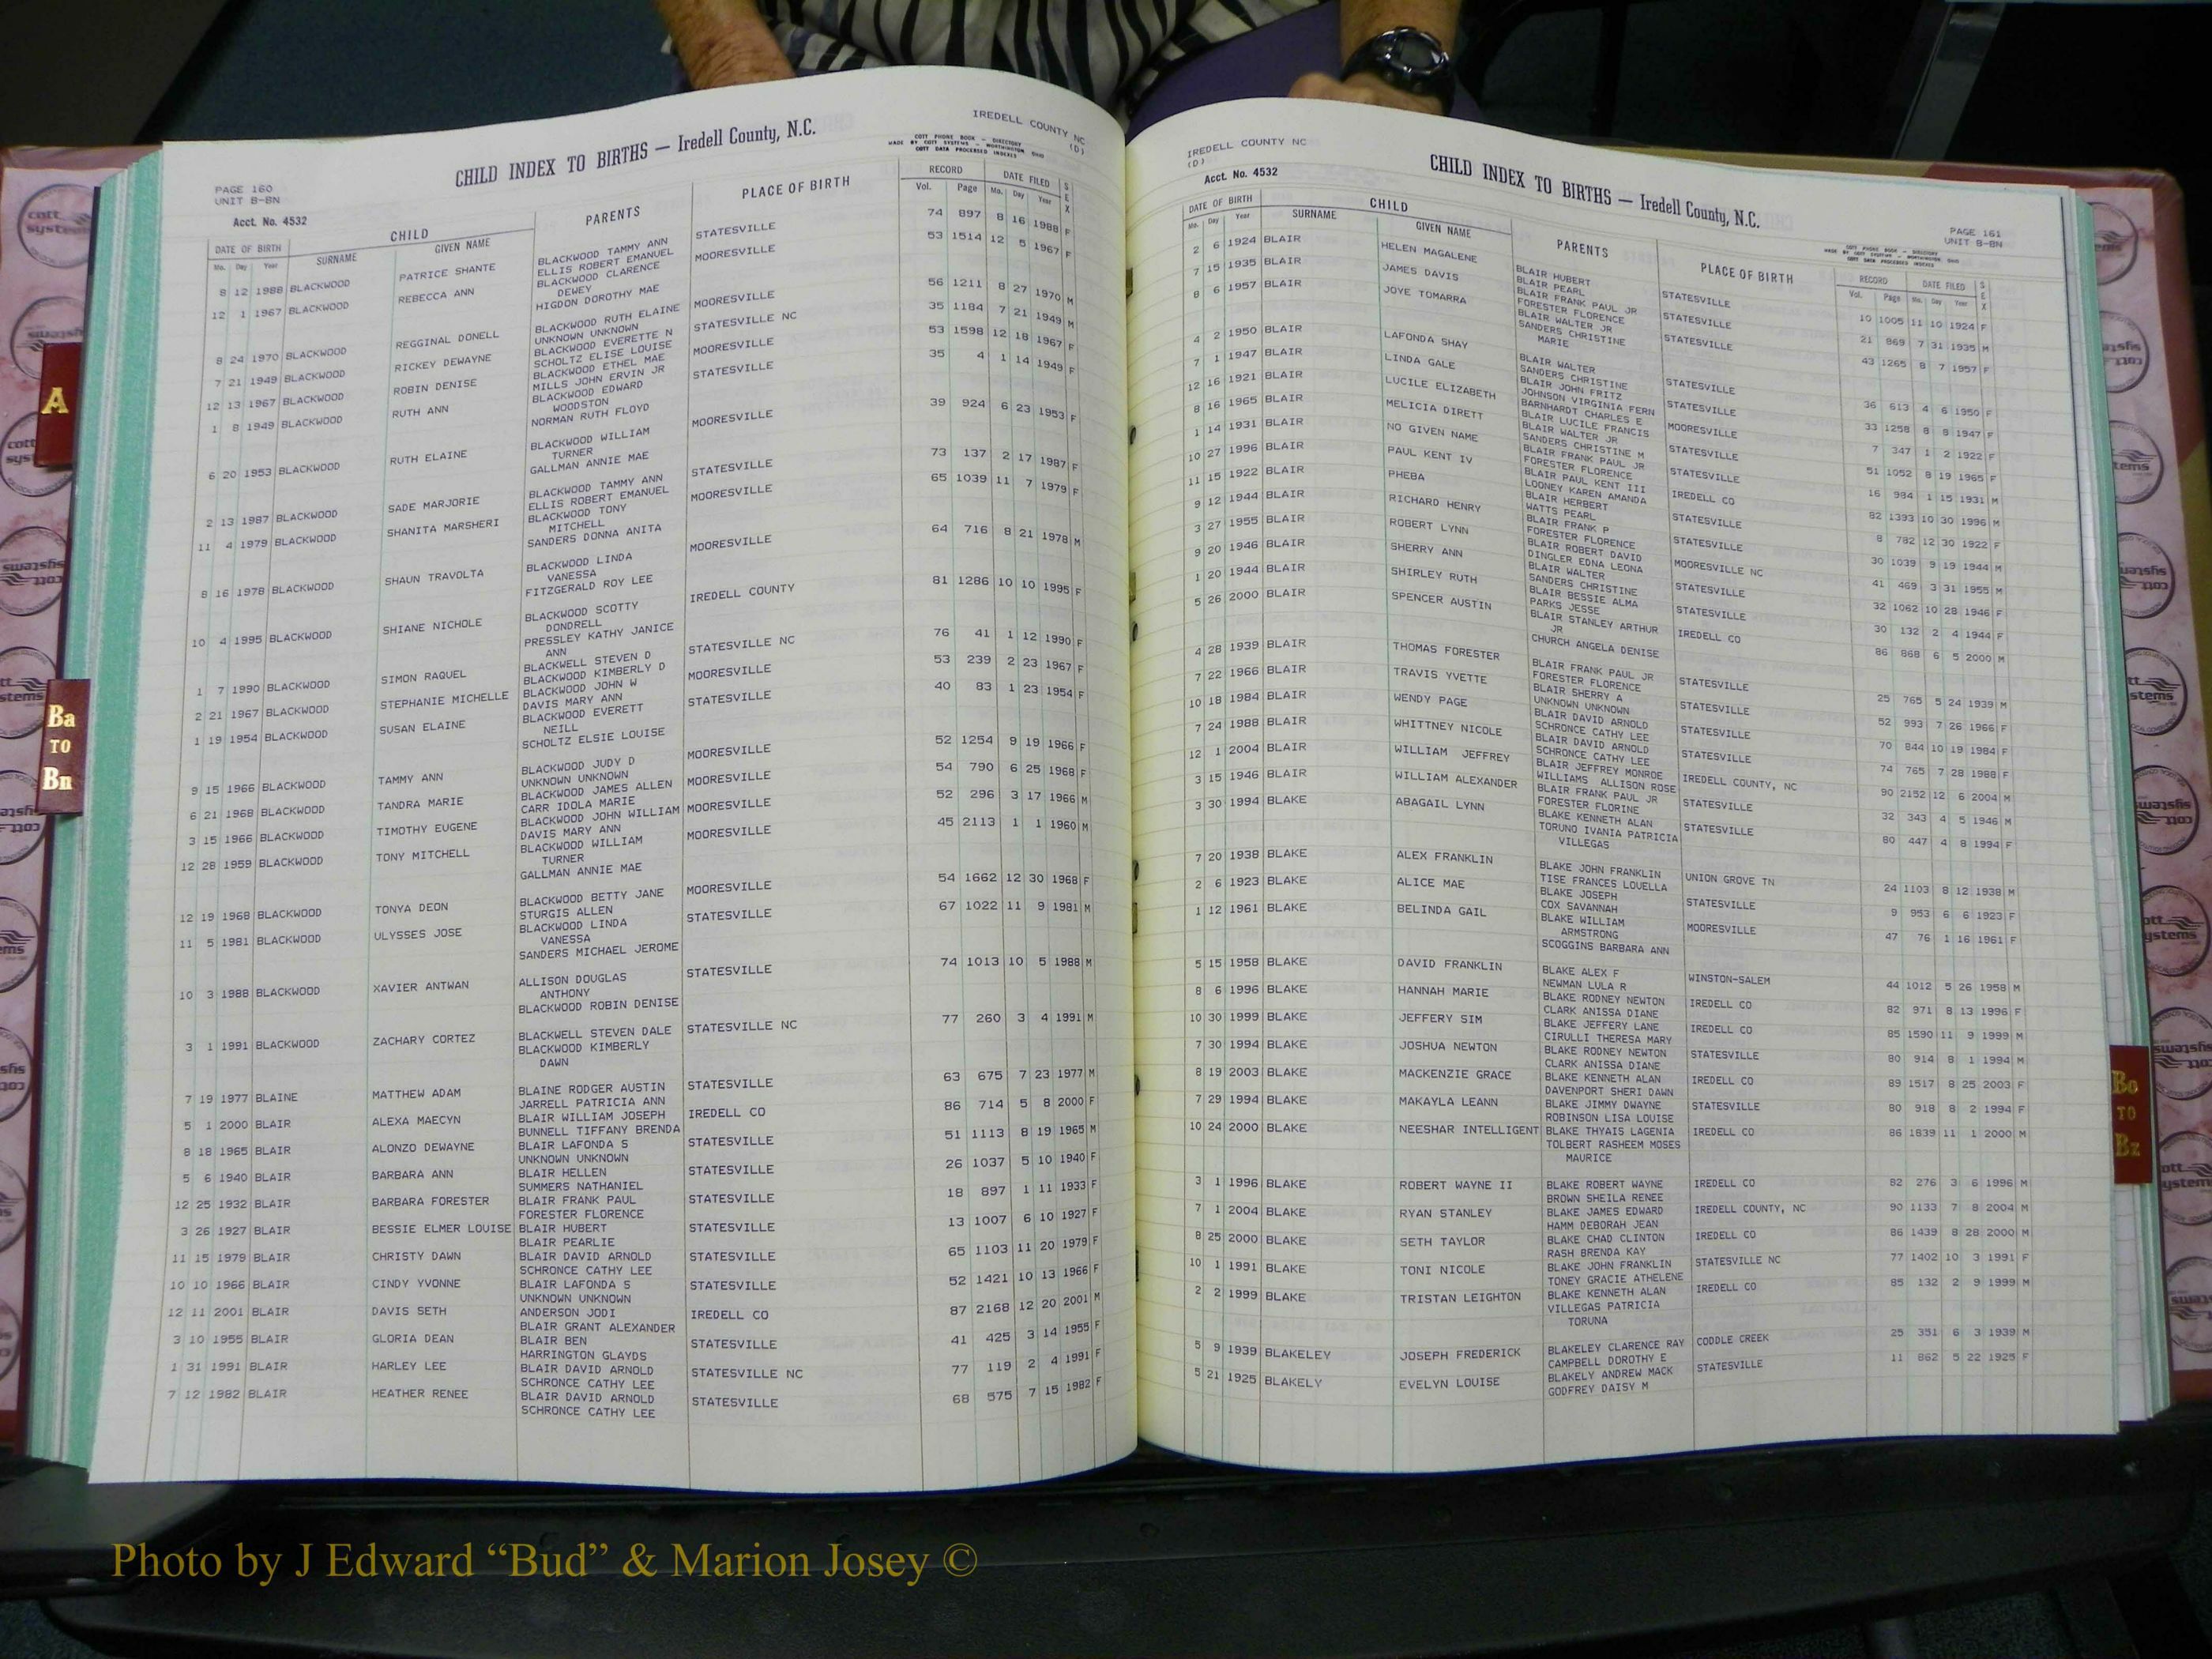 IREDELL COUNTY NC
(D)
CHILD INDEX TO BIRTHS — Iredell County, N.C.
COTT PHONE BOOK - DIRECTORY
MADE BY COTT SYSTEMS - WORTHINGTON, OHIO
COTT DATA PROCESSED INDEXES
PAGE 160
UNIT B-BN
Acct. No. 4532
DATE OF BIRTH CHILD PARENTS PLACE OF BIRTH RECORD DATE FILED SEX
Mo. Day Year SURNAME GIVEN NAME Vol. Page Mo. Day Year
8 12 1988 BLACKWOOD PATRICE SHANTE BLACKWOOD TAMMY ANN STATESVILLE 74 897 8 16 1988 F
ELLIS ROBERT EMANUEL
12 1 1967 BLACKWOOD REBECCA ANN BLACKWOOD CLARENCE MOORESVILLE 53 1514 12 5 1967 F
DEWEY
HIGDON DOROTHY MAE
8 24 1970 BLACKWOOD REGGINAL DONELL BLACKWOOD RUTH ELAINE MOORESVILLE 56 1211 8 27 1970 M
UNKNOWN UNKNOWN
7 21 1949 BLACKWOOD RICKEY DEWAYNE BLACKWOOD EVERETTE N STATESVILLE NC 35 1184 7 21 1949 M
SCHOLTZ ELISE LOUISE
12 13 1967 BLACKWOOD ROBIN DENISE BLACKWOOD ETHEL MAE MOORESVILLE 53 1598 12 18 1967 F
MILLS JOHN ERVIN JR
1 8 1949 BLACKWOOD RUTH ANN BLACKWOOD EDWARD STATESVILLE 35 4 1 14 1949 F
WOODSTON
NORMAN RUTH FLOYD
6 20 1953 BLACKWOOD RUTH ELAINE BLACKWOOD WILLIAM MOORESVILLE 39 924 6 23 1953 F
TURNER
GALLMAN ANNIE MAE
2 13 1987 BLACKWOOD SADE MARJORIE BLACKWOOD TAMMY ANN STATESVILLE 73 137 2 17 1987 F
ELLIS ROBERT EMANUEL
11 4 1979 BLACKWOOD SHANITA MARSHERI BLACKWOOD TONY MOORESVILLE 65 1039 11 7 1979 F
MITCHELL
SANDERS DONNA ANITA
8 16 1978 BLACKWOOD SHAUN TRAVOLTA BLACKWOOD LINDA MOORESVILLE 64 716 8 21 1978 M
VANESSA
FITZGERALD ROY LEE
10 4 1995 BLACKWOOD SHIANE NICHOLE BLACKWOOD SCOTTY IREDELL COUNTY 81 1286 10 10 1995 F
DONDRELL
PRESSLEY KATHY JANICE
ANN
1 7 1990 BLACKWOOD SIMON RAQUEL BLACKWELL STEVEN D STATESVILLE NC 76 41 1 12 1990 F
BLACKWOOD KIMBERLY D
2 21 1967 BLACKWOOD STEPHANIE MICHELLE BLACKWOOD JOHN W MOORESVILLE 53 239 2 23 1967 F
DAVIS MARY ANN
1 19 1954 BLACKWOOD SUSAN ELAINE BLACKWOOD EVERETT STATESVILLE 40 83 1 23 1954 F
NEILL
SCHOLTZ ELSIE LOUISE
9 15 1966 BLACKWOOD TAMMY ANN BLACKWOOD JUDY D MOORESVILLE 52 1254 9 19 1966 F
UNKNOWN UNKNOWN
6 21 1968 BLACKWOOD TANDRA MARIE BLACKWOOD JAMES ALLEN MOORESVILLE 54 790 6 25 1968 F
CARR IDOLA MARIE
3 15 1966 BLACKWOOD TIMOTHY EUGENE BLACKWOOD JOHN WILLIAM MOORESVILLE 52 296 3 17 1966 M
DAVIS MARY ANN
12 28 1959 BLACKWOOD TONY MITCHELL BLACKWOOD WILLIAM MOORESVILLE 45 2113 1 1 1960 M
TURNER
GALLMAN ANNIE MAE
12 19 1968 BLACKWOOD TONYA DEON BLACKWOOD BETTY JANE MOORESVILLE 54 1662 12 30 1968 F
STURGIS ALLEN
11 5 1981 BLACKWOOD ULYSSES JOSE BLACKWOOD LINDA STATESVILLE 67 1022 11 9 1981 M
VANESSA
SANDERS MICHAEL JEROME
10 3 1988 BLACKWOOD XAVIER ANTWAN ALLISON DOUGLAS STATESVILLE 74 1013 10 5 1988 M
ANTHONY
BLACKWOOD ROBIN DENISE
3 1 1991 BLACKWOOD ZACHARY CORTEZ BLACKWELL STEVEN DALE STATESVILLE NC 77 260 3 4 1991 M
BLACKWOOD KIMBERLY
DAWN
7 19 1977 BLAINE MATTHEW ADAM BLAINE RODGER AUSTIN STATESVILLE 63 675 7 23 1977 M
JARRELL PATRICIA ANN
5 1 2000 BLAIR ALEXA MAECYN BLAIR WILLIAM JOSEPH IREDELL CO 86 714 5 8 2000 F
BUNNELL TIFFANY BRENDA
8 18 1965 BLAIR ALONZO DEWAYNE BLAIR LAFONDA S STATESVILLE 51 1113 8 19 1965 M
UNKNOWN UNKNOWN
5 6 1940 BLAIR BARBARA ANN BLAIR HELLEN STATESVILLE 26 1037 5 10 1940 F
SUMMERS NATHANIEL
12 25 1932 BLAIR BARBARA FORESTER BLAIR FRANK PAUL STATESVILLE 18 897 1 11 1933 F
FORESTER FLORENCE
3 26 1927 BLAIR BESSIE ELMER LOUISE BLAIR HUBERT STATESVILLE 13 1007 6 10 1927 F
BLAIR PEARLIE
11 15 1979 BLAIR CHRISTY DAWN BLAIR DAVID ARNOLD STATESVILLE 65 1103 11 20 1979 F
SCHRONCE CATHY LEE
10 10 1966 BLAIR CINDY YVONNE BLAIR LAFONDA S STATESVILLE 52 1421 10 13 1966 F
UNKNOWN UNKNOWN
12 11 2001 BLAIR DAVIS SETH ANDERSON JODI IREDELL CO 87 2168 12 20 2001 M
BLAIR GRANT ALEXANDER
3 10 1955 BLAIR GLORIA DEAN BLAIR BEN STATESVILLE 41 425 3 14 1955 F
HARRINGTON GLAYDS
1 31 1991 BLAIR HARLEY LEE BLAIR DAVID ARNOLD STATESVILLE NC 77 119 2 4 1991 F
SCHRONCE CATHY LEE
7 12 1982 BLAIR HEATHER RENEE BLAIR DAVID ARNOLD STATESVILLE 68 575 7 15 1982 F
SCHRONCE CATHY LEE
IREDELL COUNTY NC
(D)
Acct. No. 4532
CHILD INDEX TO BIRTHS — Iredell County, N.C.
PAGE 161
UNIT B-BN
COTT PHONE BOOK - DIRECTORY
MADE BY COTT SYSTEMS - WORTHINGTON, OHIO
COTT DATA PROCESSED INDEXES
DATE OF BIRTH CHILD PARENTS PLACE OF BIRTH RECORD DATE FILED SEX
Mo. Day Year SURNAME GIVEN NAME Vol. Page Mo. Day Year
2 6 1924 BLAIR HELEN MAGALENE BLAIR HUBERT STATESVILLE 10 1005 11 10 1924 F
BLAIR PEARL
7 15 1935 BLAIR JAMES DAVIS BLAIR FRANK PAUL JR STATESVILLE 21 869 7 31 1935 M
FORESTER FLORENCE
8 6 1957 BLAIR JOYE TOMARRA BLAIR WALTER JR STATESVILLE 43 1265 8 7 1957 F
SANDERS CHRISTINE
MARIE
4 2 1950 BLAIR LAFONDA SHAY BLAIR WALTER STATESVILLE 36 613 4 6 1950 F
SANDERS CHRISTINE
7 1 1947 BLAIR LINDA GALE BLAIR JOHN FRITZ STATESVILLE 33 1258 8 8 1947 F
JOHNSON VIRGINIA FERN
12 16 1921 BLAIR LUCILE ELIZABETH BARNHARDT CHARLES E MOORESVILLE 7 347 1 2 1922 F
BLAIR LUCILE FRANCIS
8 16 1965 BLAIR MELICIA DIRETT BLAIR WALTER JR STATESVILLE 51 1052 8 19 1965 F
SANDERS CHRISTINE M
1 14 1931 BLAIR NO GIVEN NAME BLAIR FRANK PAUL JR STATESVILLE 16 984 1 15 1931 M
FORESTER FLORENCE
10 27 1996 BLAIR PAUL KENT IV BLAIR PAUL KENT III IREDELL CO 82 1393 10 30 1996 M
LOONEY KAREN AMANDA
11 15 1922 BLAIR PHEBA BLAIR HERBERT STATESVILLE 8 782 12 30 1922 F
WATTS PEARL
9 12 1944 BLAIR RICHARD HENRY BLAIR FRANK P STATESVILLE 30 1039 9 19 1944 M
FORESTER FLORENCE
3 27 1955 BLAIR ROBERT LYNN BLAIR ROBERT DAVID MOORESVILLE NC 41 469 3 31 1955 M
DINGLER EDNA LEONA
9 20 1946 BLAIR SHERRY ANN BLAIR WALTER STATESVILLE 32 1062 10 28 1946 F
SANDERS CHRISTINE
1 20 1944 BLAIR SHIRLEY RUTH BLAIR BESSIE ALMA STATESVILLE 30 132 2 4 1944 F
PARKS JESSE
5 26 2000 BLAIR SPENCER AUSTIN BLAIR STANLEY ARTHUR IREDELL CO 86 868 6 5 2000 M
JR
CHURCH ANGELA DENISE
4 28 1939 BLAIR THOMAS FORESTER BLAIR FRANK PAUL JR STATESVILLE 25 765 5 24 1939 M
FORESTER FLORENCE
7 22 1966 BLAIR TRAVIS YVETTE BLAIR SHERRY A STATESVILLE 52 993 7 26 1966 F
UNKNOWN UNKNOWN
10 18 1984 BLAIR WENDY PAGE BLAIR DAVID ARNOLD STATESVILLE 70 844 10 19 1984 F
SCHRONCE CATHY LEE
7 24 1988 BLAIR WHITTNEY NICOLE BLAIR DAVID ARNOLD STATESVILLE 74 765 7 28 1988 F
SCHRONCE CATHY LEE
12 1 2004 BLAIR WILLIAM JEFFREY BLAIR JEFFREY MONROE IREDELL COUNTY, NC 90 2152 12 6 2004 M
WILLIAMS ALLISON ROSE
3 15 1946 BLAIR WILLIAM ALEXANDER BLAIR FRANK PAUL JR STATESVILLE 32 343 4 5 1946 M
FORESTER FLORINE
3 30 1994 BLAKE ABAGAIL LYNN BLAKE KENNETH ALAN STATESVILLE 80 447 4 8 1994 F
TORUNO IVANIA PATRICIA
VILLEGAS
7 20 1938 BLAKE ALEX FRANKLIN BLAKE JOHN FRANKLIN UNION GROVE TN 24 1103 8 12 1938 M
TISE FRANCES LOUELLA
2 6 1923 BLAKE ALICE MAE BLAKE JOSEPH STATESVILLE 9 953 6 6 1923 F
COX SAVANNAH
1 12 1961 BLAKE BELINDA GAIL BLAKE WILLIAM MOORESVILLE 47 76 1 16 1961 F
ARMSTRONG
SCOGGINS BARBARA ANN
5 15 1958 BLAKE DAVID FRANKLIN BLAKE ALEX F WINSTON-SALEM 44 1012 5 26 1958 M
NEWMAN LULA R
8 6 1996 BLAKE HANNAH MARIE BLAKE RODNEY NEWTON IREDELL CO 82 971 8 13 1996 F
CLARK ANISSA DIANE
10 30 1999 BLAKE JEFFERY SIM BLAKE JEFFERY LANE IREDELL CO 85 1590 11 9 1999 M
CIRULLI THERESA MARY
7 30 1994 BLAKE JOSHUA NEWTON BLAKE RODNEY NEWTON STATESVILLE 80 914 8 1 1994 M
CLARK ANISSA DIANE
8 19 2003 BLAKE MACKENZIE GRACE BLAKE KENNETH ALAN IREDELL CO 89 1517 8 25 2003 F
DAVENPORT SHERI DAWN
7 29 1994 BLAKE MAKAYLA LEANN BLAKE JIMMY DWAYNE STATESVILLE 80 918 8 2 1994 F
ROBINSON LISA LOUISE
10 24 2000 BLAKE NEESHAR INTELLIGENT BLAKE THYAIS LAGENIA IREDELL CO 86 1839 11 1 2000 M
TOLBERT RASHEEM MOSES
MAURICE
3 1 1996 BLAKE ROBERT WAYNE II BLAKE ROBERT WAYNE IREDELL CO 82 276 3 6 1996 M
BROWN SHEILA RENEE
7 1 2004 BLAKE RYAN STANLEY BLAKE JAMES EDWARD IREDELL COUNTY, NC 90 1133 7 8 2004 M
HAMM DEBORAH JEAN
8 25 2000 BLAKE SETH TAYLOR BLAKE CHAD CLINTON IREDELL CO 86 1439 8 28 2000 M
RASH BRENDA KAY
10 1 1991 BLAKE TONI NICOLE BLAKE JOHN FRANKLIN STATESVILLE NC 77 1402 10 3 1991 F
TONEY GRACIE ATHELENE
2 2 1999 BLAKE TRISTAN LEIGHTON BLAKE KENNETH ALAN IREDELL CO 85 132 2 9 1999 M
VILLEGAS PATRICIA
TORUNA
5 9 1939 BLAKELEY JOSEPH FREDERICK BLAKELEY CLARENCE RAY CODDLE CREEK 25 351 6 3 1939 M
CAMPBELL DOROTHY E
5 21 1925 BLAKELY EVELYN LOUISE BLAKELY ANDREW MACK STATESVILLE 11 862 5 22 1925 F
GODFREY DAISY M
A
Ba
TO
Bn
Bo
TO
Bz
cott
systems
Photo by J Edward “Bud” & Marion Josey ©